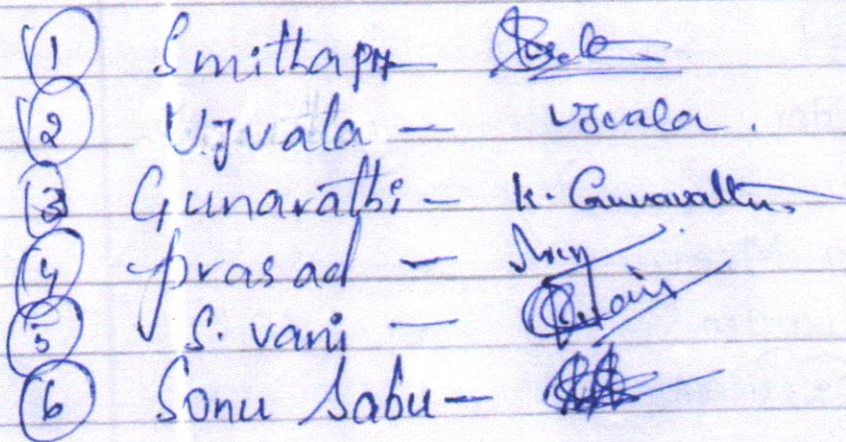 ① Smitha PH
② Ujvala — Ujvala.
③ Gunarathi — K. Gunavathi
④ prasad —
⑤ S. vani —
⑥ Sonu Sabu —